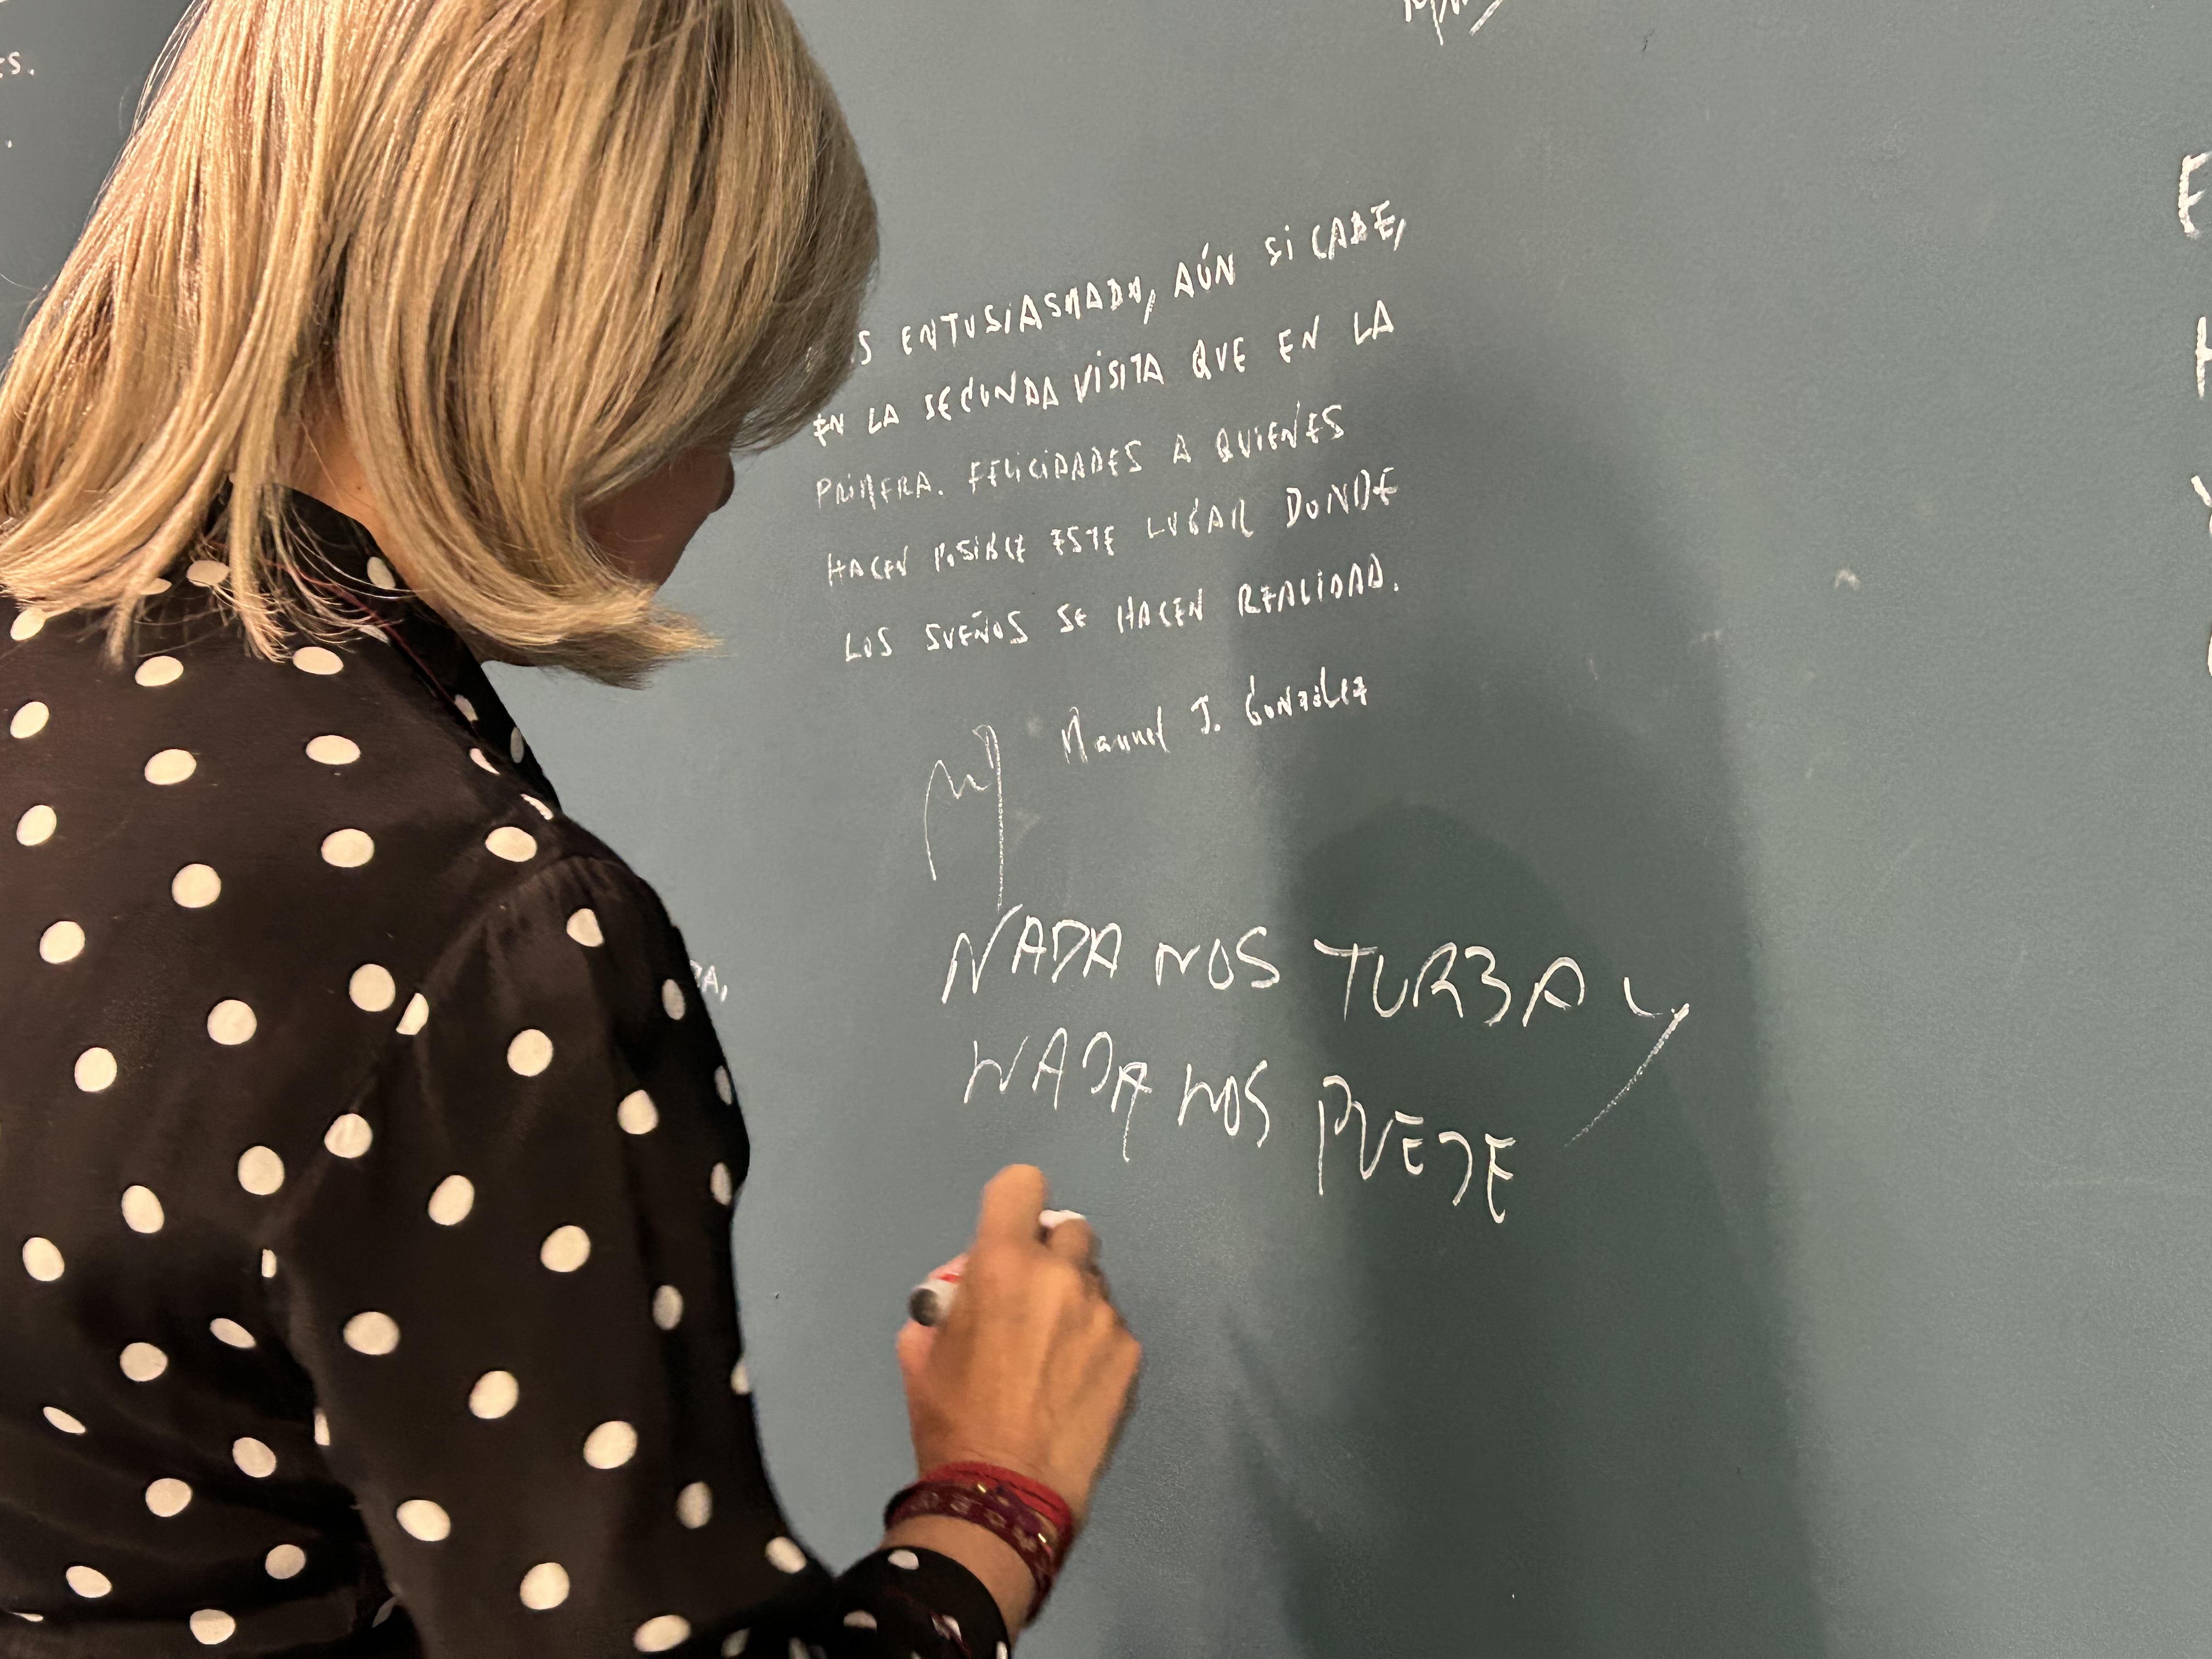 ES.
S ENTUSIASMADO, AÚN SI CABE,
EN LA SEGUNDA VISITA QUE EN LA
PRIMERA. FELICIDADES A QUIENES
HACEN POSIBLE ESTE LUGAR DONDE
LOS SUEÑOS SE HACEN REALIDAD.
Manuel J. González
NADA NOS TURBA Y
NADA NOS PUEDE